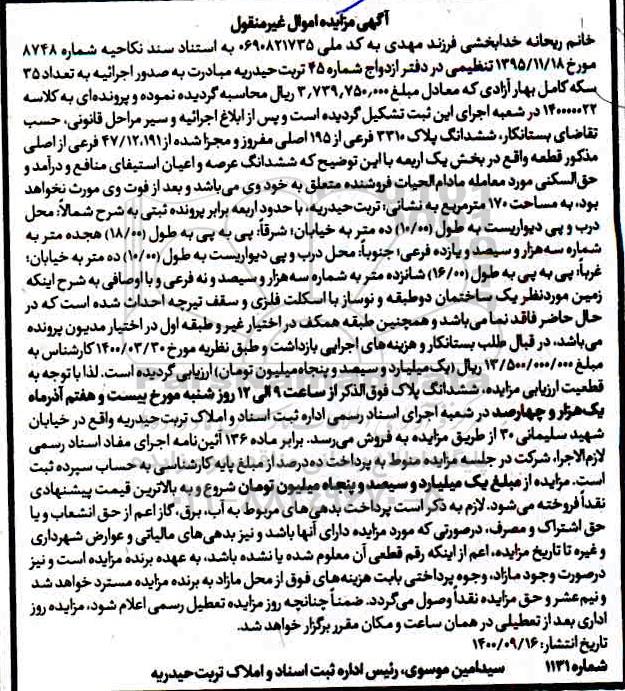 آگهی مزایده اموال غیرمنقول
خانم ریحانه خدابخشی فرزند مهدی به کد ملی ۰۶۹۰۸۲۱۷۳۵ به استناد سند نکاحیه شماره ۸۷۴۸
مورخ ۱۳۹۵/۱۱/۱۸ تنظیمی در دفتر ازدواج شماره ۴۵ تربت‌حیدریه مبادرت به صدور اجرائیه به تعداد ۳۵
سکه کامل بهار آزادی که معادل مبلغ ۳,۷۳۹,۷۵۰,۰۰۰ ریال محاسبه گردیده نموده و پرونده‌ای به کلاسه
۱۴۰۰۰۰۰۲۲ در شعبه اجرای این ثبت تشکیل گردیده است و پس از ابلاغ اجرائیه و سیر مراحل قانونی، حسب
تقاضای بستانکار، ششدانگ پلاک ۳۳۱۰ فرعی از ۱۹۵ اصلی مفروز و مجزا شده از ۴۷/۱۲,۱۹۱ فرعی از اصلی
مذکور قطعه واقع در بخش یک اربعه با این توضیح که ششدانگ عرصه و اعیان استیفای منافع و درآمد و
حق‌السکنی مورد معامله مادام‌الحیات فروشنده متعلق به خود وی می‌باشد و بعد از فوت وی مورث نخواهد
بود، به مساحت ۱۷۰ مترمربع به نشانی: تربت‌حیدریه، با حدود اربعه برابر پرونده ثبتی به شرح شمالاً: محل
درب و پی دیواریست به طول (۱۰/۰۰) ده متر به خیابان؛ شرقاً: پی به پی به طول (۱۸/۰۰) هجده متر به
شماره سه‌هزار و سیصد و یازده فرعی؛ جنوباً: محل درب و پی دیواریست به طول (۱۰/۰۰) ده متر به خیابان؛
غرباً: پی به پی به طول (۱۶/۰۰) شانزده متر به شماره سه‌هزار و سیصد و نه فرعی و با اوصافی به شرح اینکه
زمین موردنظر یک ساختمان دوطبقه و نوساز با اسکلت فلزی و سقف تیرچه احداث شده است که در
حال حاضر فاقد نما می‌باشد و همچنین طبقه همکف در اختیار غیر و طبقه اول در اختیار مدیون پرونده
می‌باشد، در قبال طلب بستانکار و هزینه‌های اجرایی بازداشت و طبق نظریه مورخ ۱۴۰۰/۰۳/۳۰ کارشناس به
مبلغ ۱۳/۵۰۰/۰۰۰/۰۰۰ ریال (یک‌میلیارد و سیصد و پنجاه‌میلیون تومان) ارزیابی گردیده است. لذا با توجه به
قطعیت ارزیابی مزایده، ششدانگ پلاک فوق‌الذکر از ساعت ۹ الی ۱۲ روز شنبه مورخ بیست و هفتم آذرماه
یک‌هزار و چهارصد در شعبه اجرای اسناد رسمی اداره ثبت اسناد و املاک تربت‌حیدریه واقع در خیابان
شهید سلیمانی ۳۰ از طریق مزایده به فروش می‌رسد. برابر ماده ۱۳۶ آئین‌نامه اجرای مفاد اسناد رسمی
لازم‌الاجرا، شرکت در جلسه مزایده منوط به پرداخت ده‌درصد از مبلغ پایه کارشناسی به حساب سپرده ثبت
است. مزایده از مبلغ یک میلیارد و سیصد و پنجاه میلیون تومان شروع و به بالاترین قیمت پیشنهادی
نقداً فروخته می‌شود. لازم به ذکر است پرداخت بدهی‌های مربوط به آب، برق، گاز اعم از حق انشعاب و یا
حق اشتراک و مصرف، درصورتی که مورد مزایده دارای آنها باشد و نیز بدهی‌های مالیاتی و عوارض شهرداری
و غیره تا تاریخ مزایده، اعم از اینکه رقم قطعی آن معلوم شده یا نشده باشد، به عهده برنده مزایده است و نیز
درصورت وجود مازاد، وجوه پرداختی بابت هزینه‌های فوق از محل مازاد به برنده مزایده مسترد خواهد شد
و نیم‌عشر و حق مزایده نقداً وصول می‌گردد. ضمناً چنانچه روز مزایده تعطیل رسمی اعلام شود، مزایده روز
اداری بعد از تعطیلی در همان ساعت و مکان مقرر برگزار خواهد شد.
تاریخ انتشار: ۱۴۰۰/۰۹/۱۶
شماره ۱۱۳۱ سیدامین موسوی، رئیس اداره ثبت اسناد و املاک تربت‌حیدریه